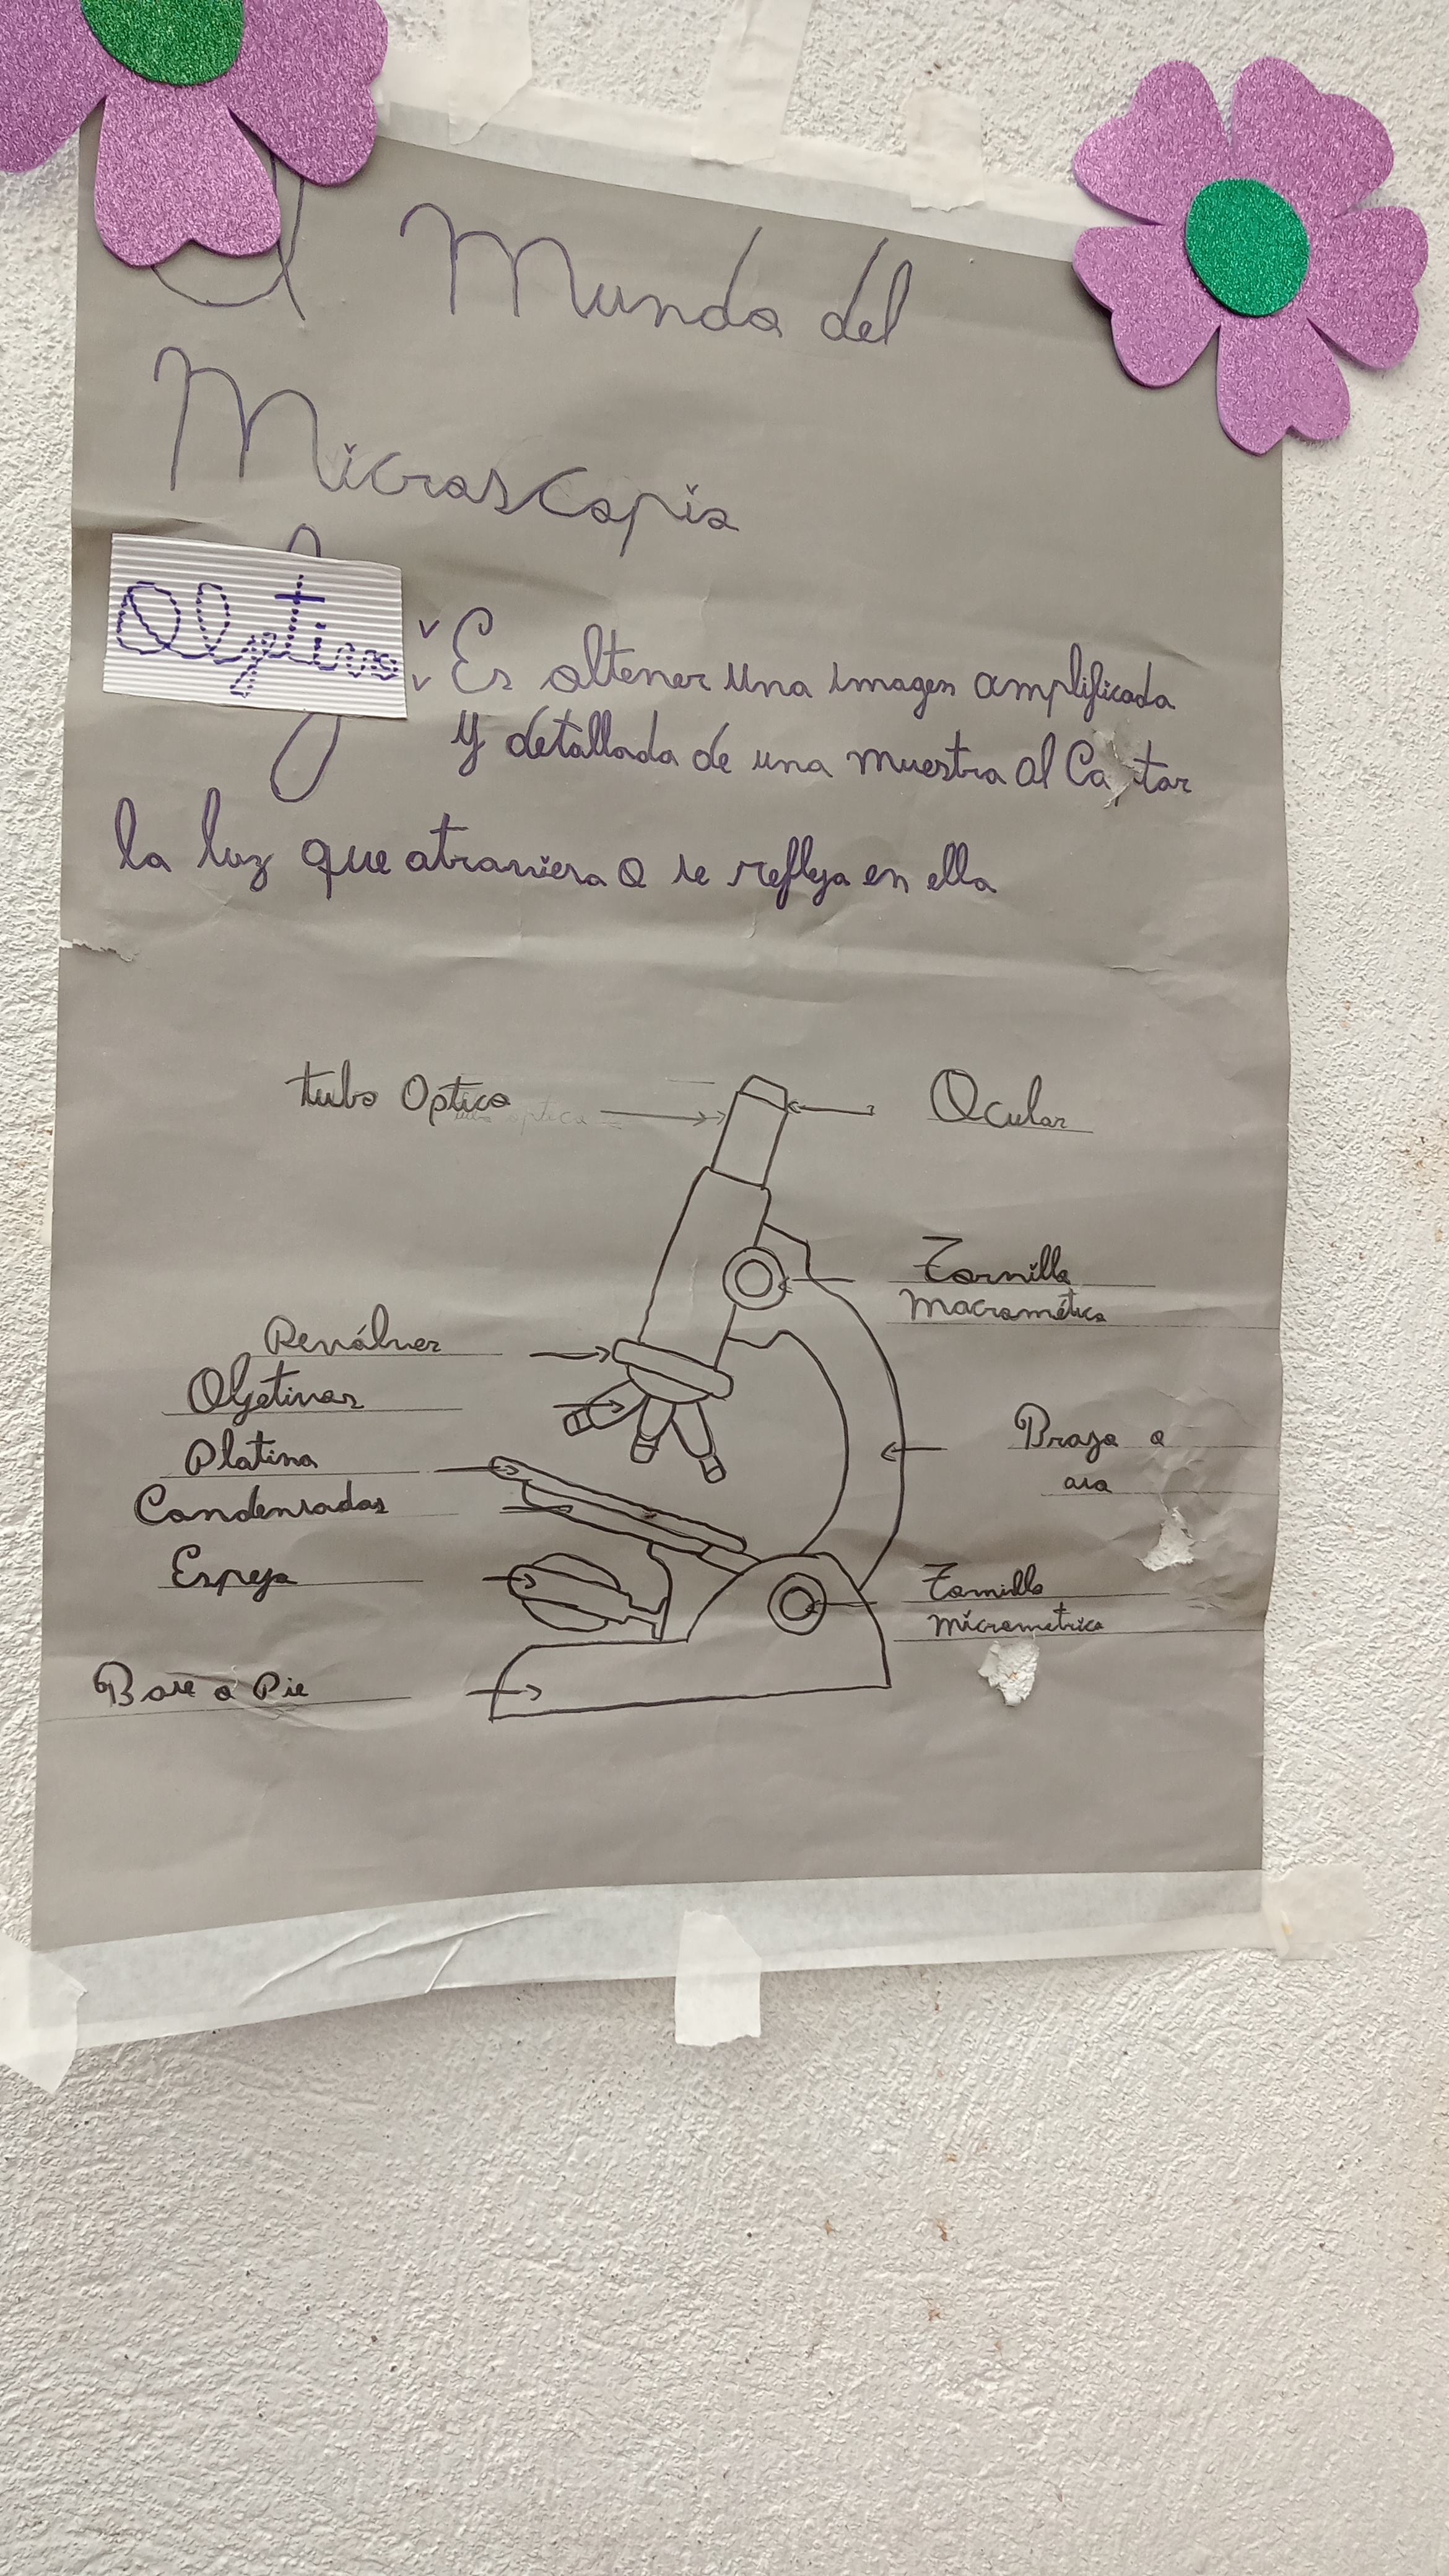 El Mundo del
Microscopio
Objetivo: Es obtener una imagen amplificada
y detallada de una muestra al Captar
la luz que atraviesa o se refleja en ella
tubo Optico
Ocular
Tornillo
macrométrico
Revólver
Objetivos
Platina
Brazo o
asa
Condensador
Espejo
Tornillo
micrometrico
Base o Pie